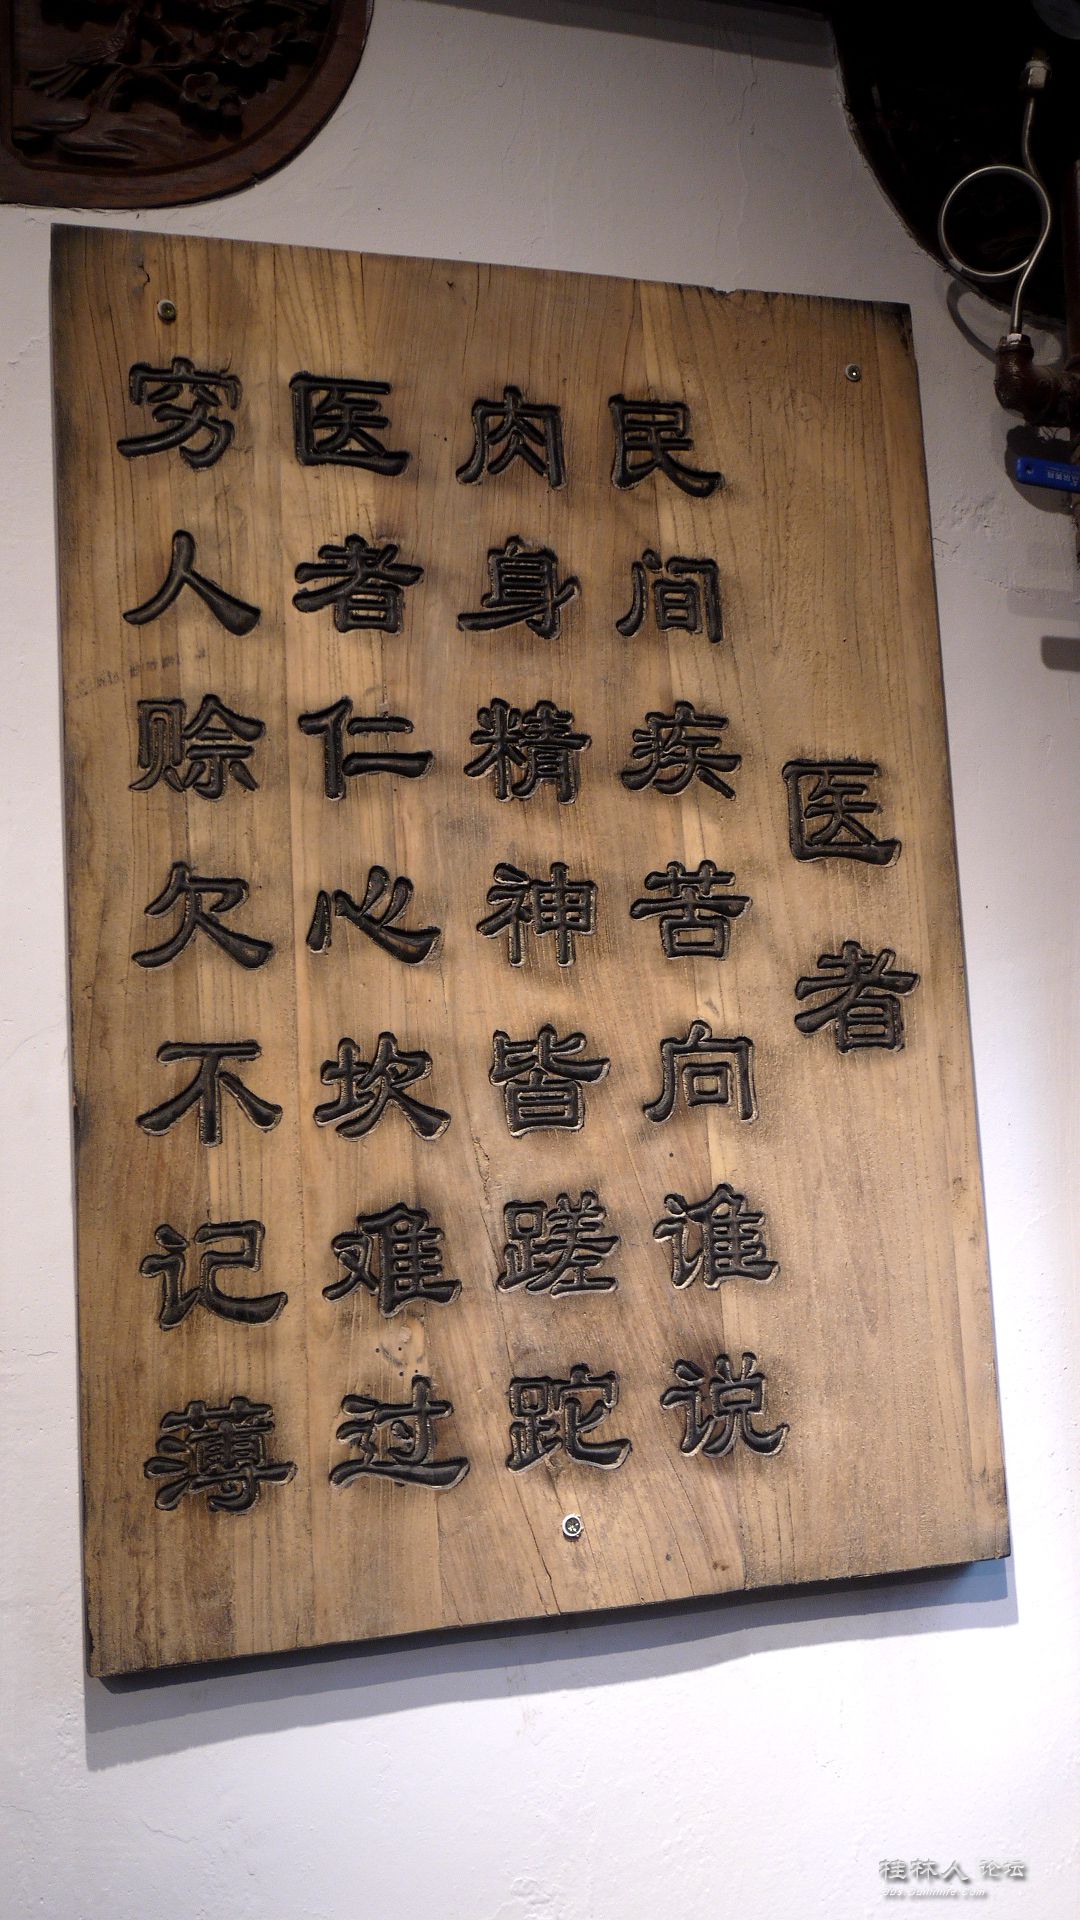 医者
民间疾苦向谁说
肉身精神皆蹉跎
医者仁心坎难过
穷人赊欠不记薄
桂林人 论坛